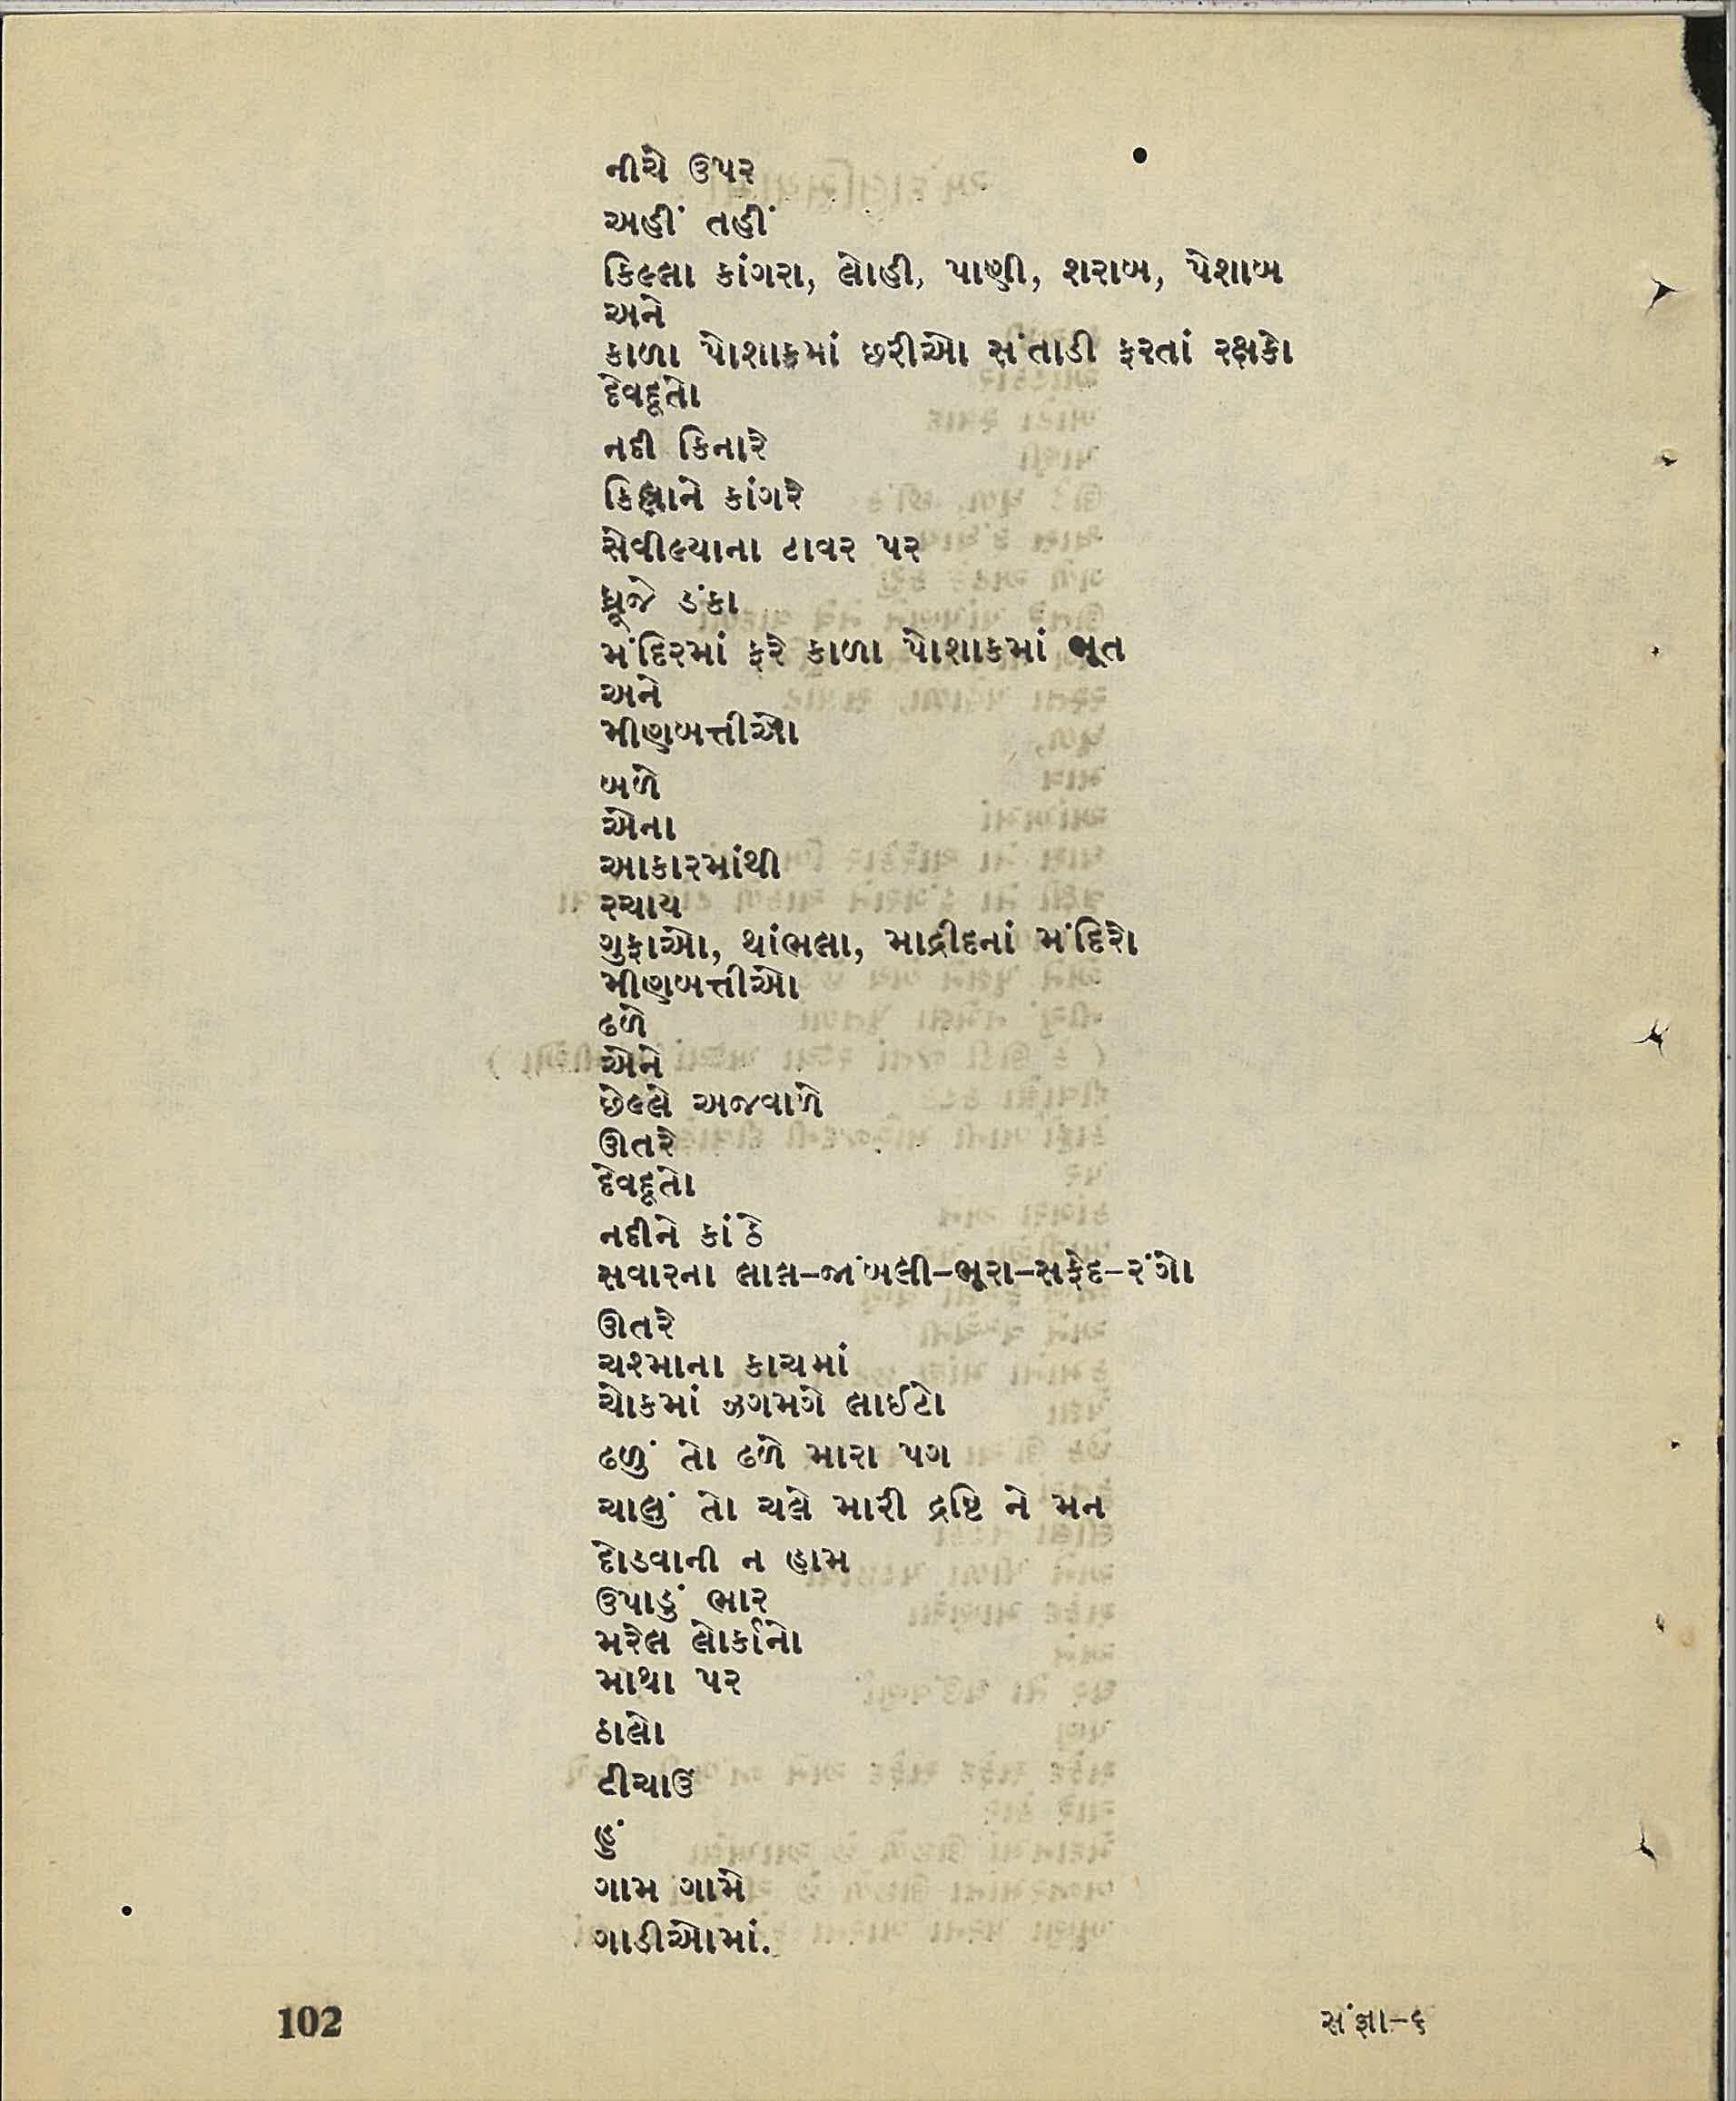 નીચે ઉપર
અહીં તહીં
કિલ્લા કાંગરા, લોહી, પાણી, શરાબ, પેશાબ
અને
કાળા પોશાકમાં છરીઓ સંતાડી ફરતાં રક્ષકો
દેવદૂતો
નદી કિનારે
કિલ્લાને કાંગરે
સેવીલ્યાના ટાવર પર
ધ્રૂજે ડંકા
મંદિરમાં ફરે કાળા પોશાકમાં ભૂત
અને
મીણબત્તીઓ
બળે
એના
આકારમાંથી
રચાય
ગુફાઓ, થાંભલા, માદ્રીદનાં મંદિરો
મીણબત્તીઓ
ઢળે
એને
છેલ્લે અજવાળે
ઊતરે
દેવદૂતો
નદીને કાંઠે
સવારના લાલ-જાંબલી-ભૂરા-સફેદ-રંગો
ઊતરે
ચશ્માના કાચમાં
ચોકમાં ઝગમગે લાઈટો
ઢળું તો ઢળે મારા પગ
ચાલું તો ચલે મારી દ્રષ્ટિ ને મન
દોડવાની ન હામ
ઉપાડું ભાર
મરેલ લોર્કાનો
માથા પર
ઠાલો
ટીચાઉં
હું
ગામ ગામે
ગાડીઓમાં.
102
સંજ્ઞા-૬